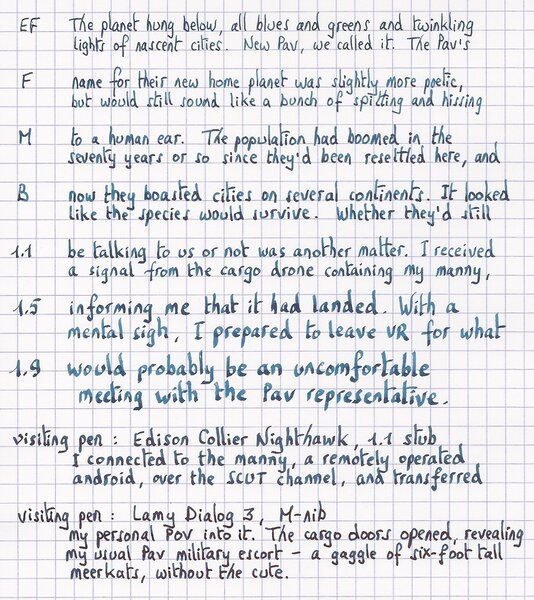 EF The planet hung below, all blues and greens and twinkling
lights of nascent cities. New Pav, we called it. The Pav's
F name for their new home planet was slightly more poetic,
but would still sound like a bunch of spitting and hissing
M to a human ear. The population had boomed in the
seventy years or so since they'd been resettled here, and
B now they boasted cities on several continents. It looked
like the species would survive. Whether they'd still
1.1 be talking to us or not was another matter. I received
a signal from the cargo drone containing my manny,
1.5 informing me that it had landed. With a
mental sigh, I prepared to leave VR for what
1.9 would probably be an uncomfortable
meeting with the Pav representative.
visiting pen : Edison Collier Nighthawk, 1.1 stub
I connected to the manny, a remotely operated
android, over the SCUT channel, and transferred
visiting pen : Lamy Dialog 3, M-nib
my personal POV into it. The cargo doors opened, revealing
my usual Pav military escort – a gaggle of six-foot tall
meerkats, without the cute.